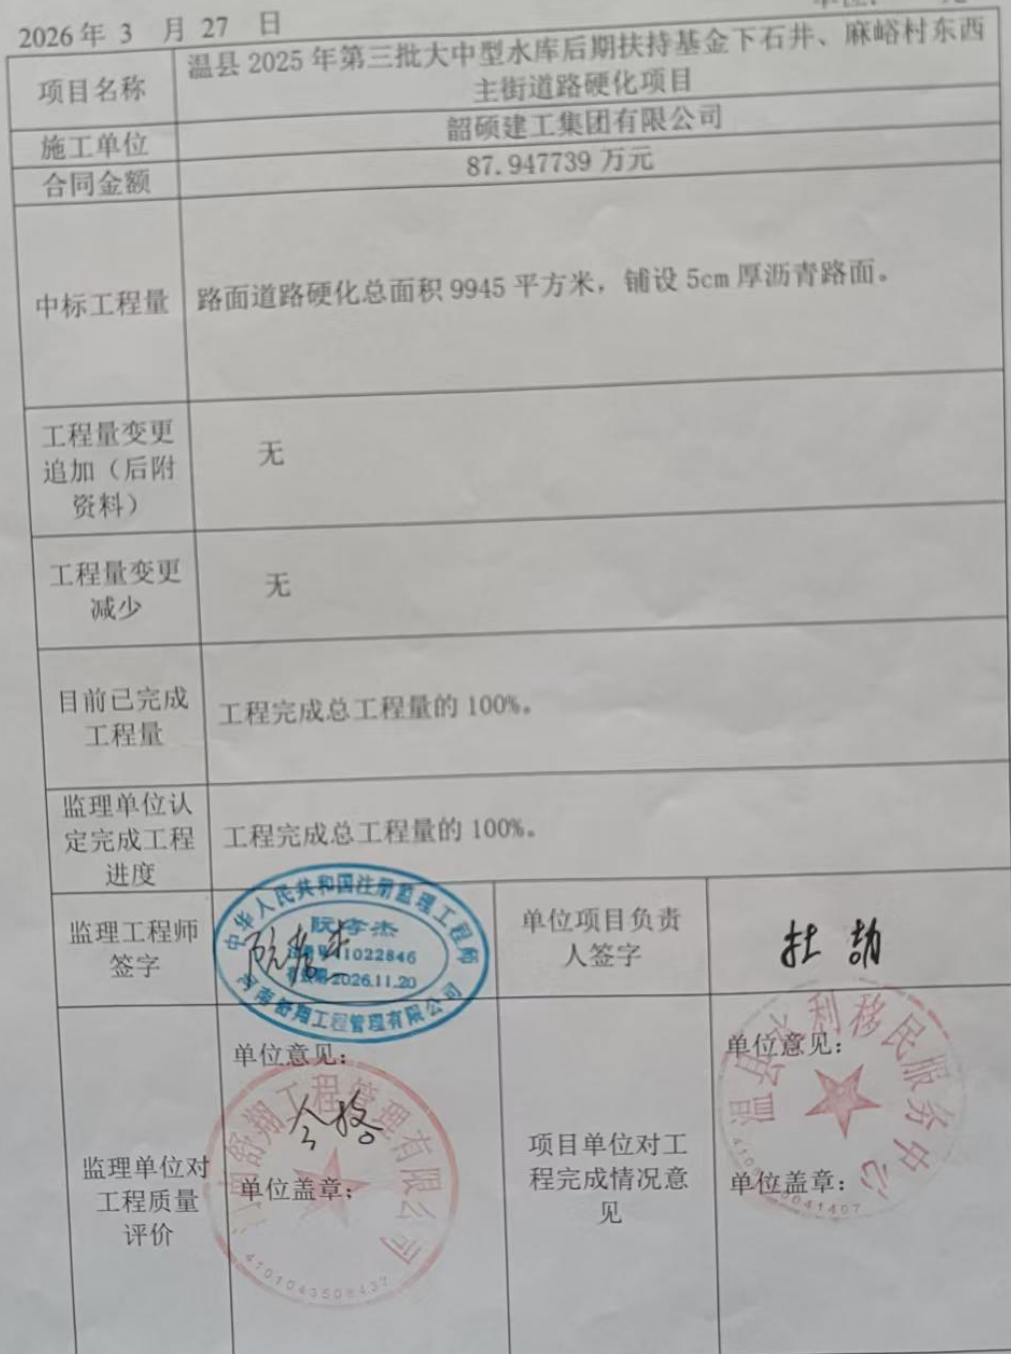 2026年 3 月 27 日
项目名称
温县 2025 年第三批大中型水库后期扶持基金下石井、麻峪村东西
主街道路硬化项目
施工单位
韶硕建工集团有限公司
合同金额
87.947739 万元
中标工程量
路面道路硬化总面积 9945 平方米，铺设 5cm 厚沥青路面。
工程量变更
追加（后附
资料）
无
工程量变更
减少
无
目前已完成
工程量
工程完成总工程量的 100%。
监理单位认
定完成工程
进度
工程完成总工程量的 100%。
监理工程师
签字
中华人民共和国注册监理工程师
11022846
2026.11.20
河南舒翔工程管理有限公司
单位项目负责
人签字
监理单位对
工程质量
评价
单位意见：
合格
单位盖章：
河南舒翔工程管理有限公司
4101043508437
项目单位对工
程完成情况意
见
单位意见：
单位盖章：
温县水利移民服务中心